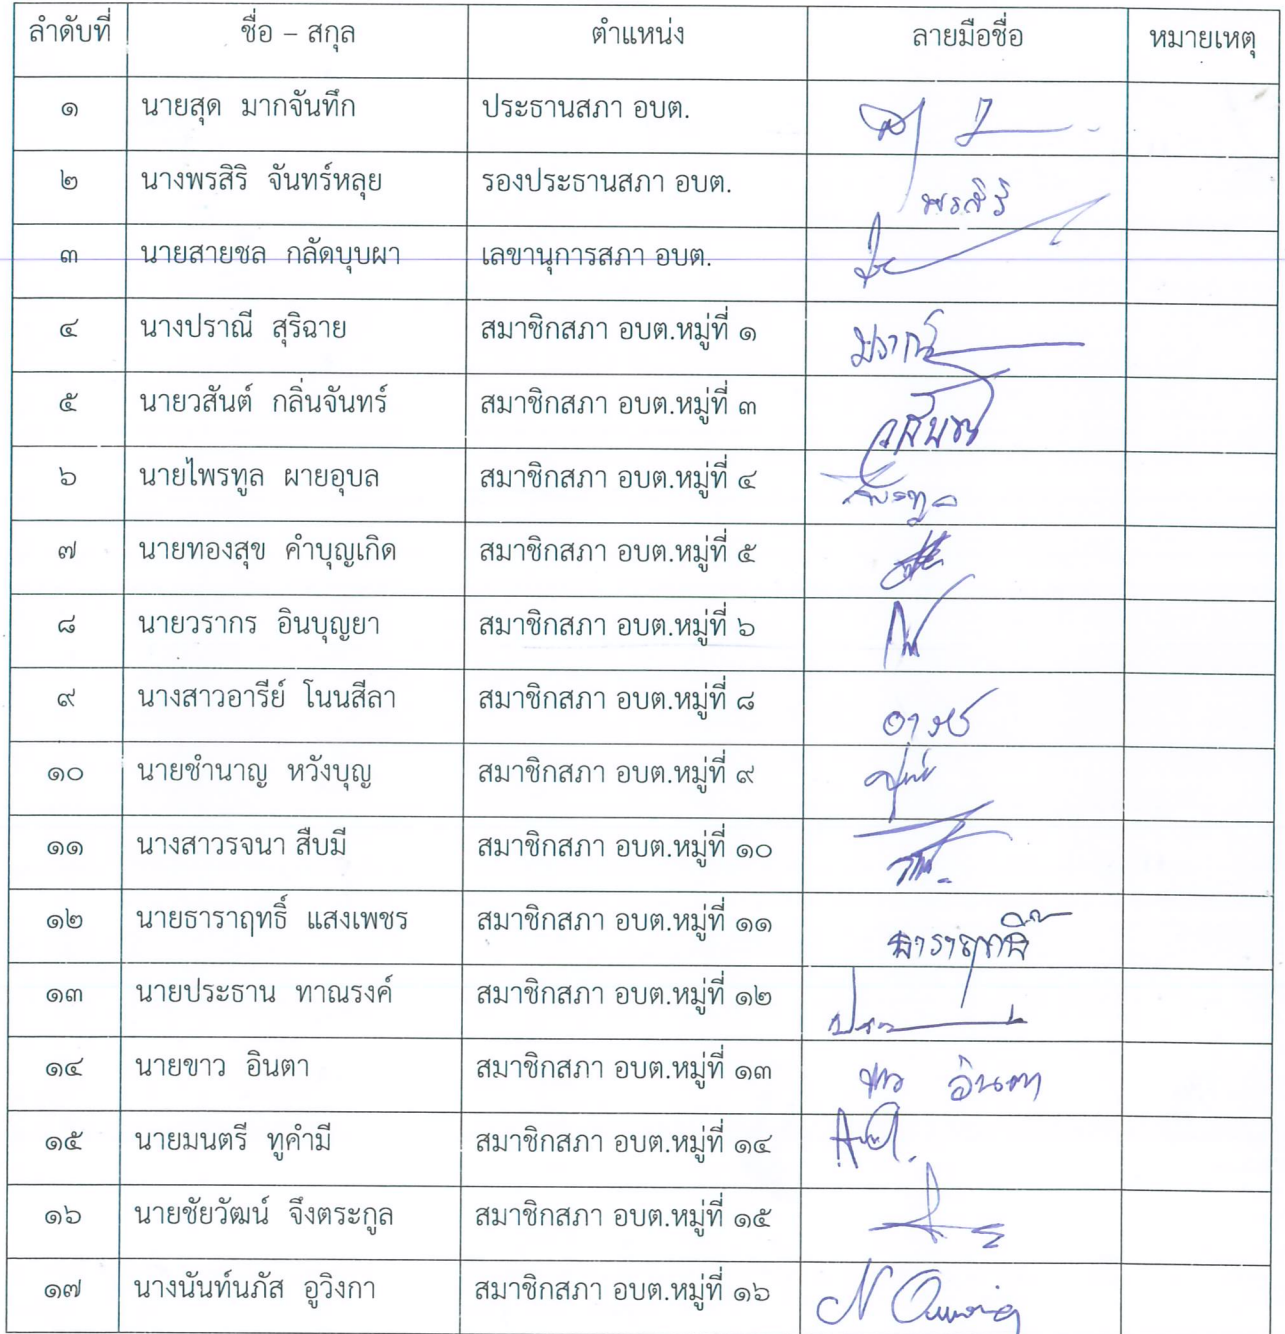 ลำดับที่ ชื่อ – สกุล ตำแหน่ง ลายมือชื่อ หมายเหตุ
๑ นายสุด มากจันทึก ประธานสภา อบต.
๒ นางพรสิริ จันทร์หลุย รองประธานสภา อบต. พรสิริ
๓ นายสายชล กลัดบุบผา เลขานุการสภา อบต.
๔ นางปราณี สุริฉาย สมาชิกสภา อบต.หมู่ที่ ๑ ปราณี
๕ นายวสันต์ กลิ่นจันทร์ สมาชิกสภา อบต.หมู่ที่ ๓ วสันต์
๖ นายไพรทูล ผายอุบล สมาชิกสภา อบต.หมู่ที่ ๔ ไพรทูล
๗ นายทองสุข คำบุญเกิด สมาชิกสภา อบต.หมู่ที่ ๕
๘ นายวรากร อินบุญยา สมาชิกสภา อบต.หมู่ที่ ๖
๙ นางสาวอารีย์ โนนสีลา สมาชิกสภา อบต.หมู่ที่ ๘ อารีย์
๑๐ นายชำนาญ หวังบุญ สมาชิกสภา อบต.หมู่ที่ ๙
๑๑ นางสาวรจนา สืบมี สมาชิกสภา อบต.หมู่ที่ ๑๐
๑๒ นายธาราฤทธิ์ แสงเพชร สมาชิกสภา อบต.หมู่ที่ ๑๑ ธาราฤทธิ์
๑๓ นายประธาน ทาณรงค์ สมาชิกสภา อบต.หมู่ที่ ๑๒
๑๔ นายขาว อินตา สมาชิกสภา อบต.หมู่ที่ ๑๓ ขาว อินตา
๑๕ นายมนตรี ทูคำมี สมาชิกสภา อบต.หมู่ที่ ๑๔
๑๖ นายชัยวัฒน์ จึงตระกูล สมาชิกสภา อบต.หมู่ที่ ๑๕
๑๗ นางนันท์นภัส อูวิงกา สมาชิกสภา อบต.หมู่ที่ ๑๖